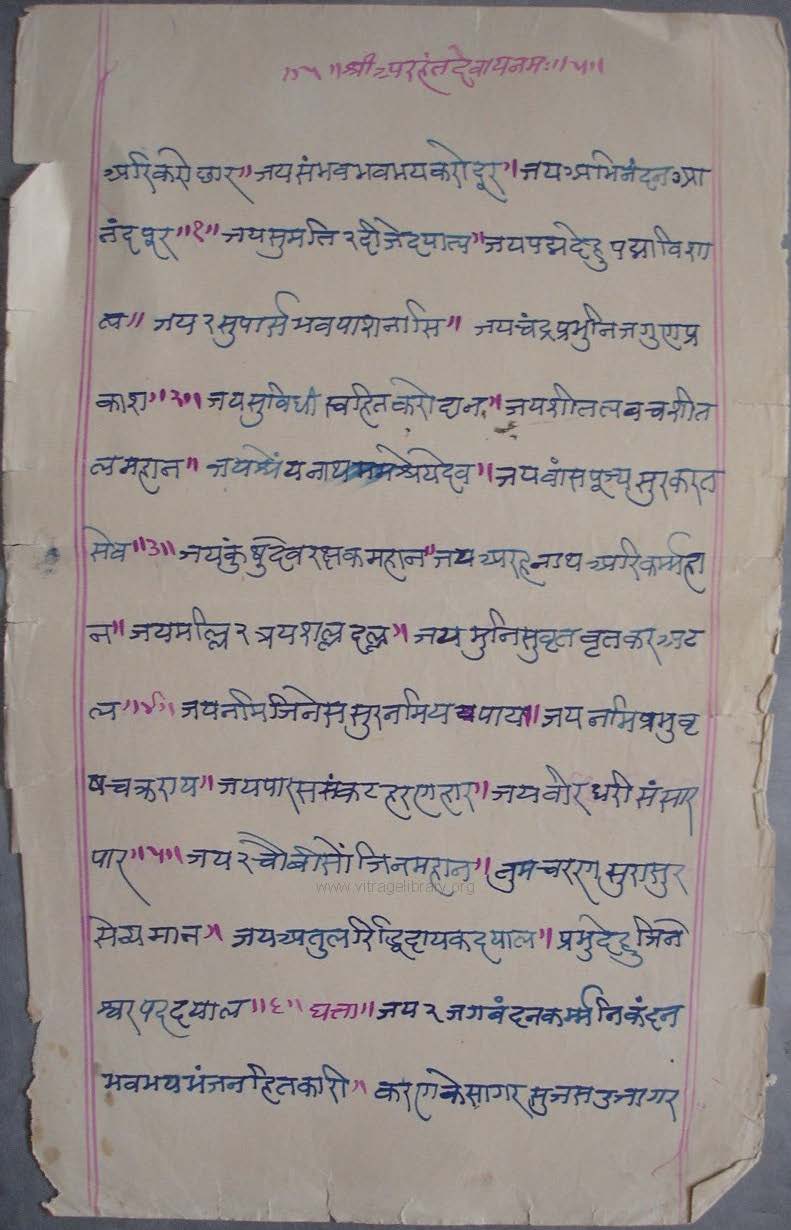 ।।५।।श्रीअरहंतदेवायनमः।।५।।
अरिकरो छार॥ जयसंभवभवभयकरोदूर॥ जयअभिनंदनआ
नंदपूर॥१॥ जयसुमति२दीजेदयाल॥जयपद्मदेहुपद्माविशा
ल॥ जय२सुपार्सभवपाशनासि॥ जयचंद्रप्रभुनिजगुणप्र
काश॥२॥ जयसुविधी स्वहितकरोदान॥जयशीतलवचशीत
लमहान॥ जयश्रेयनाथ श्रेयदेव॥जयवांसपूज्यसुरकरत
सेव॥३॥ जयकुंथुदेवरक्षकमहान॥जयअरहनाथअरिकर्म्महा
न॥ जयमल्लि२त्रयशल्लदल्ल॥ जयमुनिसुवृतवृतकरअट
ल॥४॥ जयनमिजिनेससुरनमियपाय॥जयनमिप्रभुवृ
षचक्रराय॥ जयपारससंकटहरणहार॥जयवीरधरीसंसार
पार॥५॥ जय२चौबीसौंजिनमहान॥ तुमचरणसुरासुर
www.vitragelibrary.org
सेव्यमान॥ जयअतुलरिद्धिदायकदयाल॥प्रभुदेहुजिने
श्वरपरदयाल॥६॥ घत्ता॥जय२जगवंदनकर्म्मनिकंदन
भवभयभंजनहितकारी॥ करणकेसागरसुजसउजागर